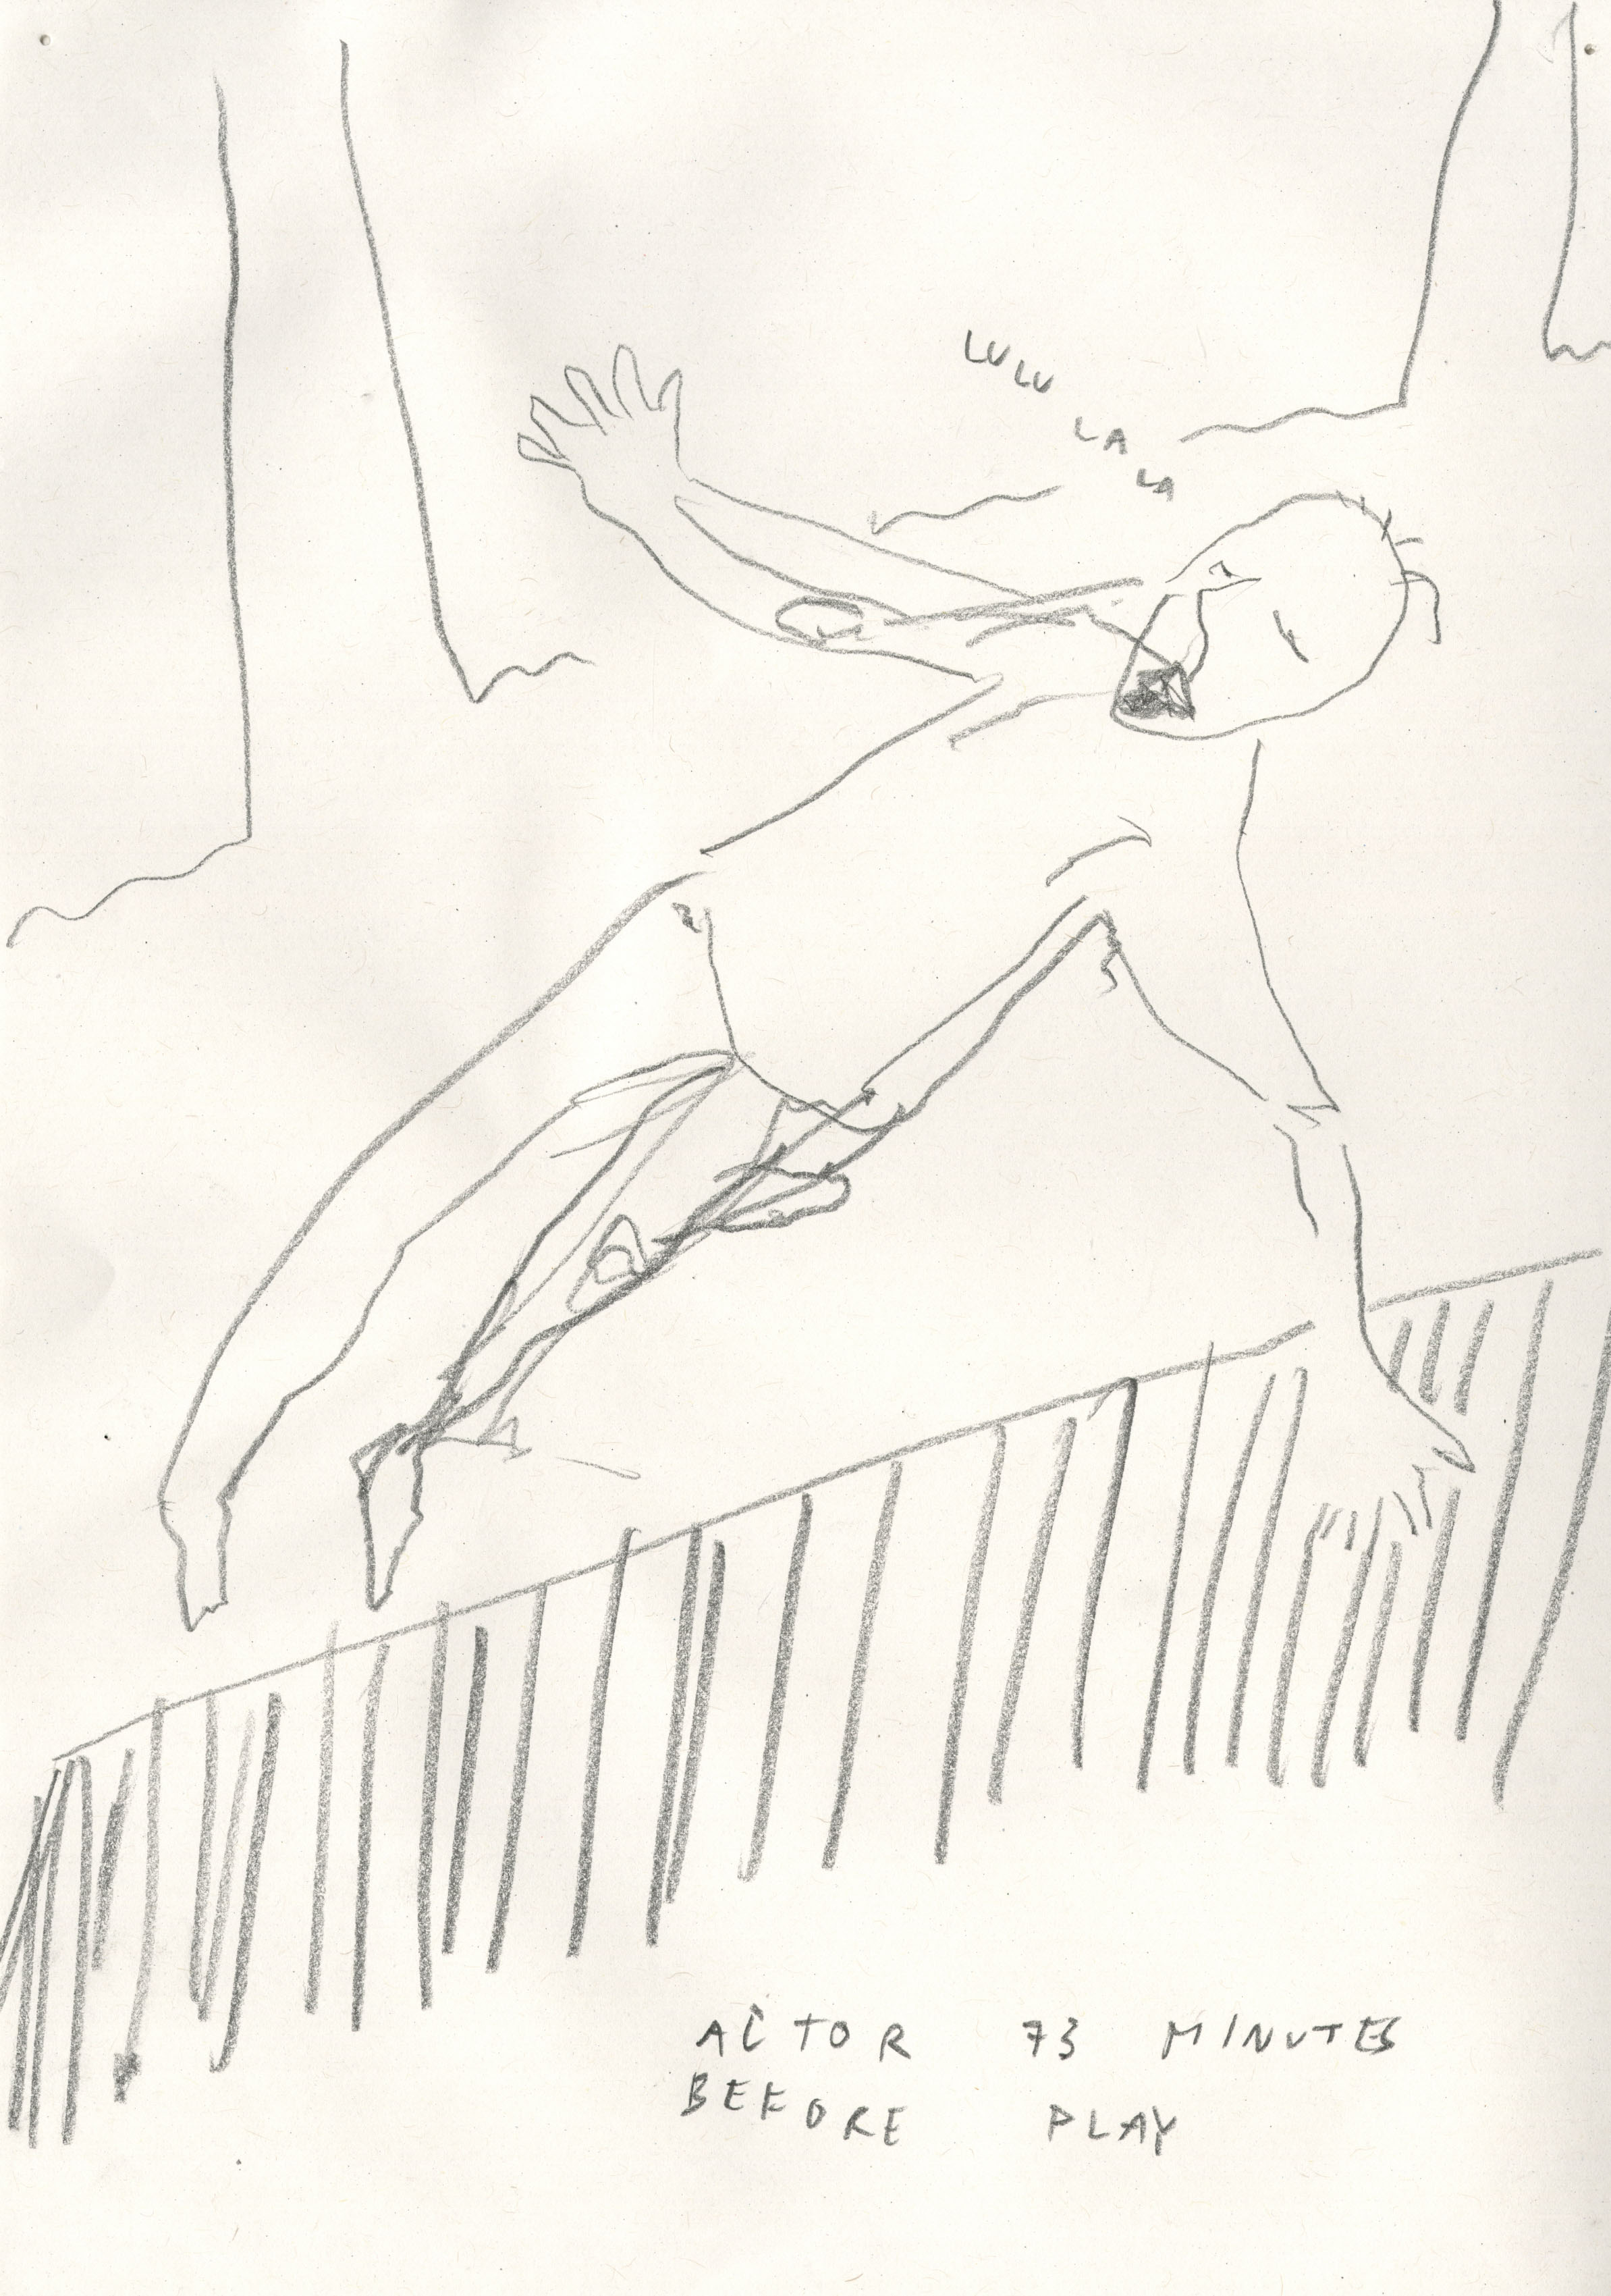 LULU
LA
LA
ACTOR 73 MINUTES
BEFORE PLAY